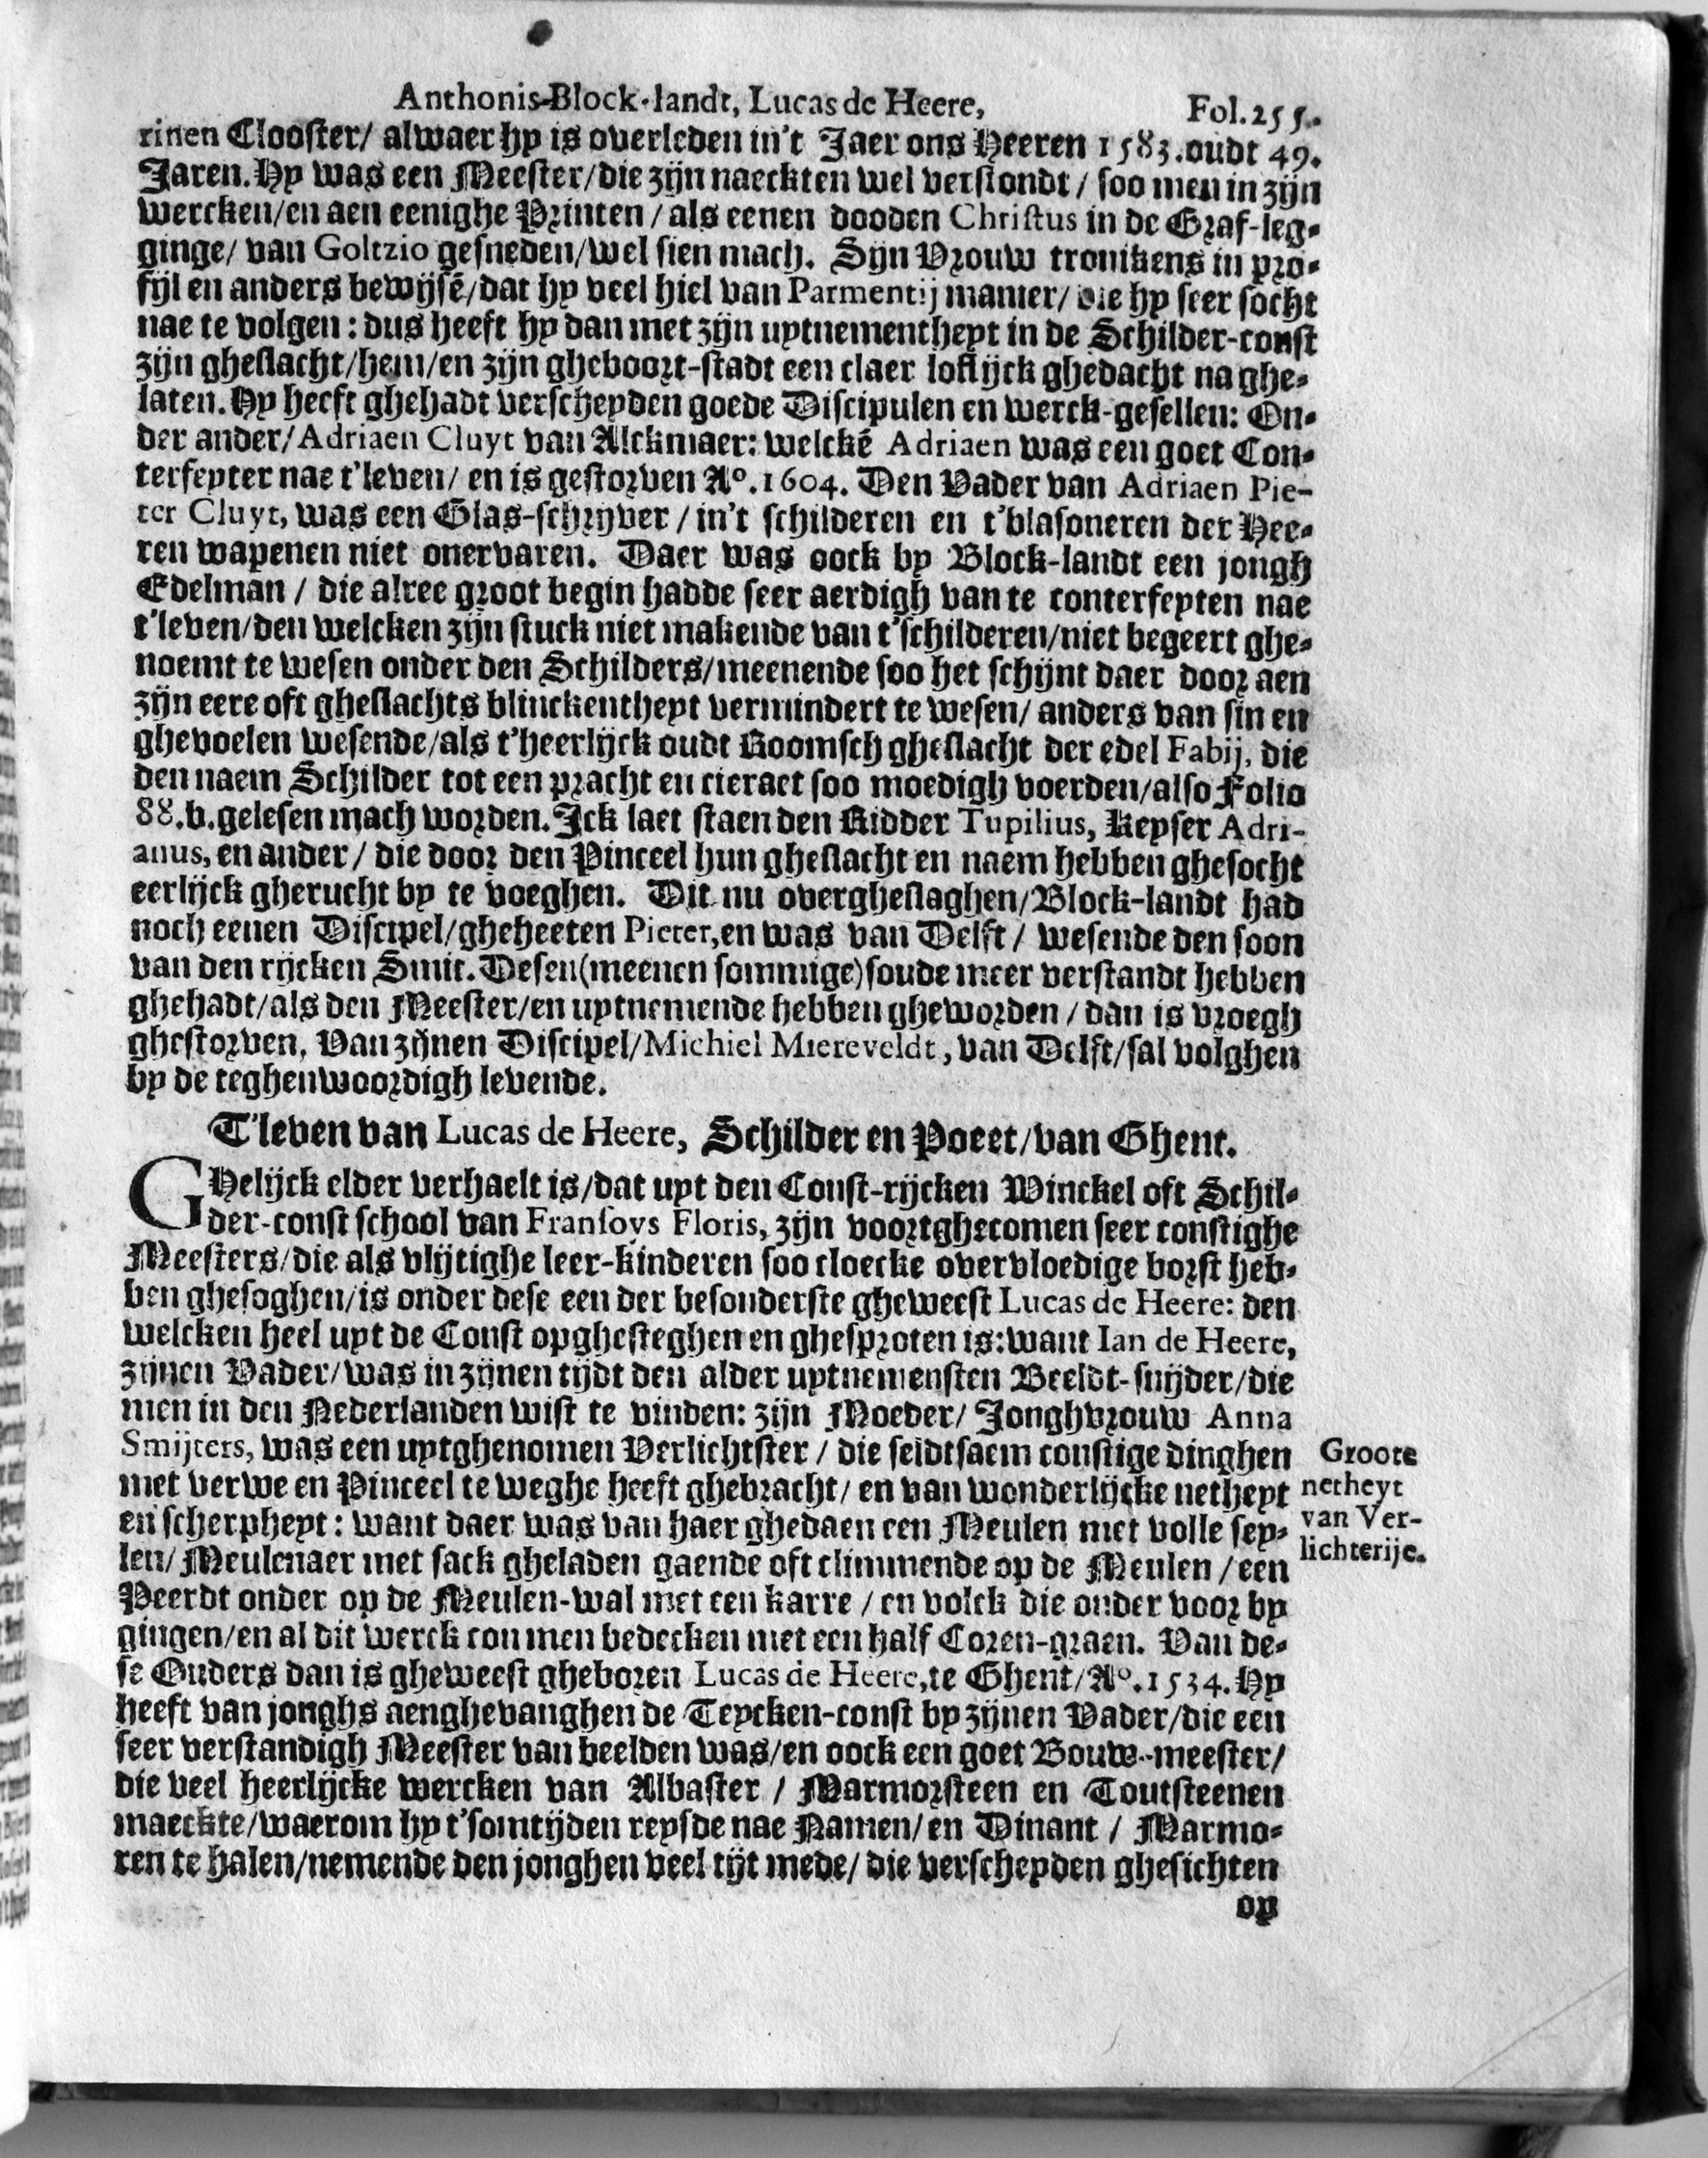 Anthonis-Block-landt, Lucas de Heere, Fol.255.
rinen Clooster/ alwaer hy is overleden in't Jaer ons Heeren 1583. oudt 49.
Jaren. Hy was een Meester/die zijn naeckten wel verstondt/ soo men in zijn
wercken/en aen eenighe Printen/als eenen dooden Christus in de Graf-leg-
ginge/ van Goltzio gesneden/wel sien mach. Syn Vrouw tronikens in pro-
fijl en anders bewijsē/dat hy veel hiel van Parmentij manier/ die hy seer socht
nae te volgen: dus heeft hy dan met zijn uytnementheyt in de Schilder-const
zijn gheslacht/hem/en zijn gheboort-stadt een claer loflijck ghedacht na ghe-
laten. Hy heeft ghehadt verscheyden goede Discipulen en werck-gesellen: On-
der ander/Adriaen Cluyt van Alckmaer: welckē Adriaen was een goet Con-
terfeyter nae t'leven/ en is gestorven Ao. 1604. Den Vader van Adriaen Pie-
ter Cluyt, was een Glas-schrijver / in't schilderen en t'blasoneren der Hee-
ren wapenen niet onervaren. Daer was oock by Block-landt een jongh
Edelman / die alree groot begin hadde seer aerdigh van te conterfeyten nae
t'leven/den welcken zijn stuck niet makende van t'schilderen/niet begeert ghe-
noemt te wesen onder den Schilders/meenende soo het schijnt daer door aen
zijn eere oft gheslachts blinckentheyt vermindert te wesen/ anders van sin en
ghevoelen wesende/als t'heerlijck oudt Roomsch gheslacht der edel Fabij, die
den naem Schilder tot een pracht en cieraet soo moedigh voerden/also Folio
88.v. gelesen mach worden. Ick laet staen den Ridder Tupilius, Keyser Adri-
anus, en ander / die door den Pinceel hun gheslacht en naem hebben ghesocht
eerlijck gherucht by te voeghen. Dit nu overgheslaghen/Block-landt had
noch eenen Discipel/gheheeten Pieter, en was van Delft / wesende den soon
van den rijcken Smit. Desen (meenen sommige) soude meer verstandt hebben
ghehadt/als den Meester/en uytnemende hebben gheworden / dan is vroegh
ghestorven. Van zijnen Discipel/Michiel Miereveldt, van Delft/sal volghen
by de teghenwoordigh levende.
T'leven van Lucas de Heere, Schilder en Poeet/van Ghent.
GHelijck elder verhaelt is/dat uyt den Const-rijcken Winckel oft Schil-
der-const school van Fransoys Floris, zijn voortghecomen seer constighe
Meesters/die als vlijtighe leer-kinderen soo cloecke overvloedige borst heb-
ben ghesoghen/is onder dese een der besonderste gheweest Lucas de Heere: den
welcken heel uyt de Const opghesteghen en ghesproten is: want Ian de Heere,
zijnen Vader/was in zijnen tijdt den alder uytnemensten Beeldt-snijder/die
men in den Nederlanden wist te vinden: zijn Moeder/ Jonghvrouw Anna
Smijters, was een uytghenomen Verlichtster / die seldtsaem constige dinghen
met verwe en Pinceel te weghe heeft ghebracht/ en van wonderlijcke netheyt
en scherpheyt: want daer was van haer ghedaen een Meulen met volle sey-
len/ Meulenaer met sack gheladen gaende oft climmende op de Meulen / een
Peerdt onder op de Meulen-wal met een karre / en volck die onder voor by
gingen/en al dit werck con men bedecken met een half Coren-graen. Van de-
se Ouders dan is gheweest gheboren Lucas de Heere, te Ghent/Ao. 1534. Hy
heeft van jonghs aenghevanghen de Teycken-const by zijnen Vader/die een
seer verstandigh Meester van beelden was/en oock een goet Bouw-meester/
die veel heerlijcke wercken van Albaster / Marmorsteen en Toutsteenen
maeckte/waerom hy t'somtijden reysde nae Namen/en Dinant / Marmo-
ren te halen/nemende den jonghen veel tijt mede/ die verscheyden ghesichten
op
Groote
netheyt
van Ver-
lichterije.